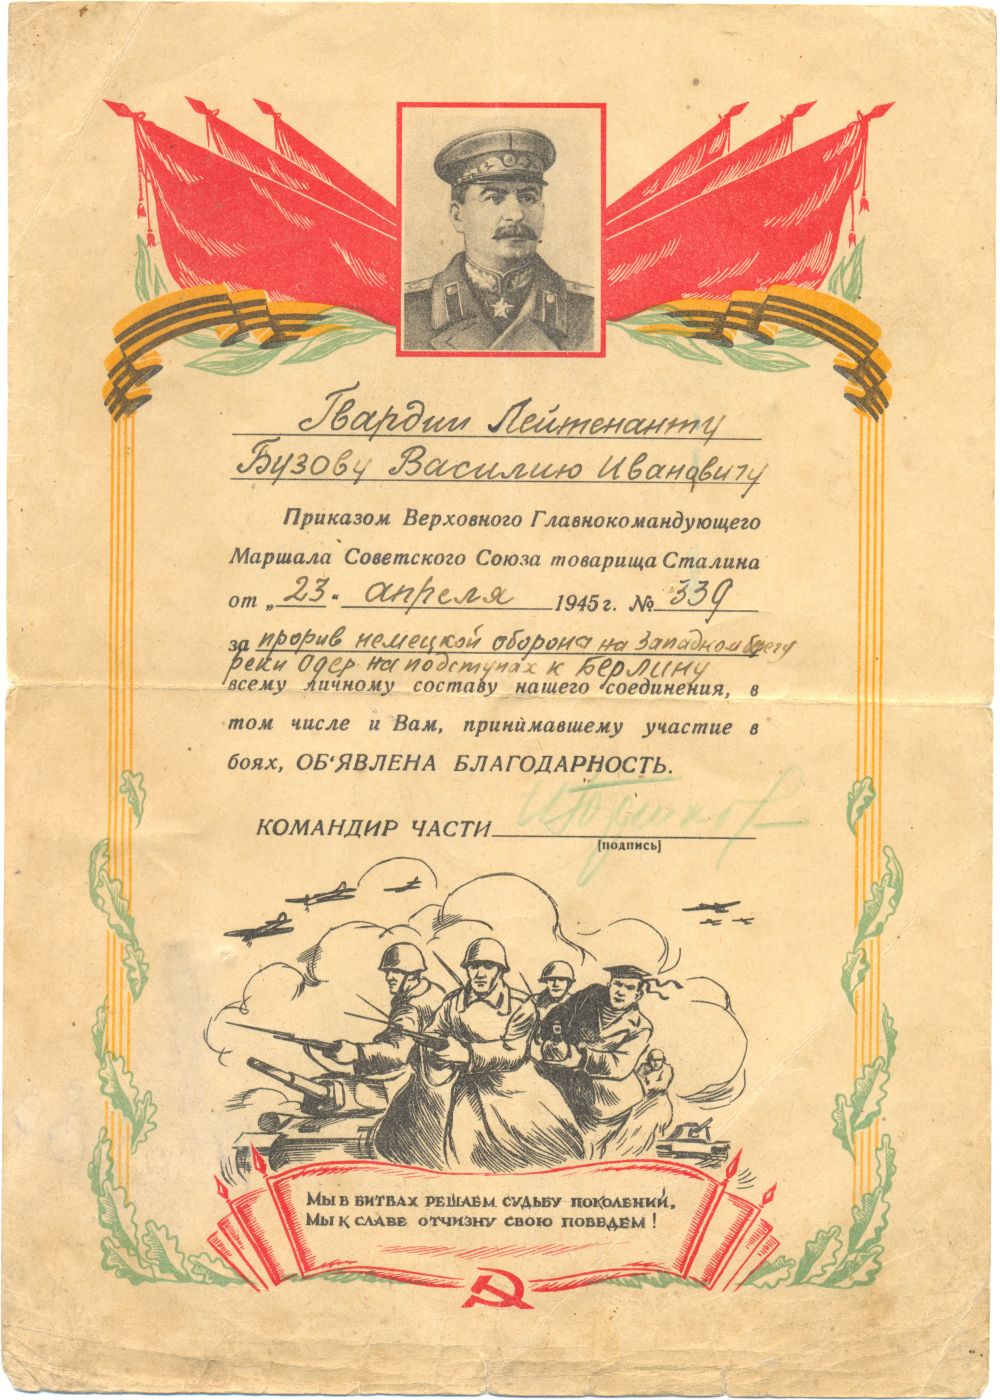 Гвардии Лейтенанту
Бузову Василию Ивановичу
Приказом Верховного Главнокомандующего
Маршала Советского Союза товарища Сталина
от „23“ апреля 1945 г. № 339
за прорив немецкой оборона на Западном берегу
реки Одер на подступах к Берлину
всему личному составу нашего соединения, в
том числе и Вам, принимавшему участие в
боях, ОБ'ЯВЛЕНА БЛАГОДАРНОСТЬ.
КОМАНДИР ЧАСТИ
(подпись)
МЫ В БИТВАХ РЕШАЕМ СУДЬБУ ПОКОЛЕНИЙ,
МЫ К СЛАВЕ ОТЧИЗНУ СВОЮ ПОВЕДЕМ!